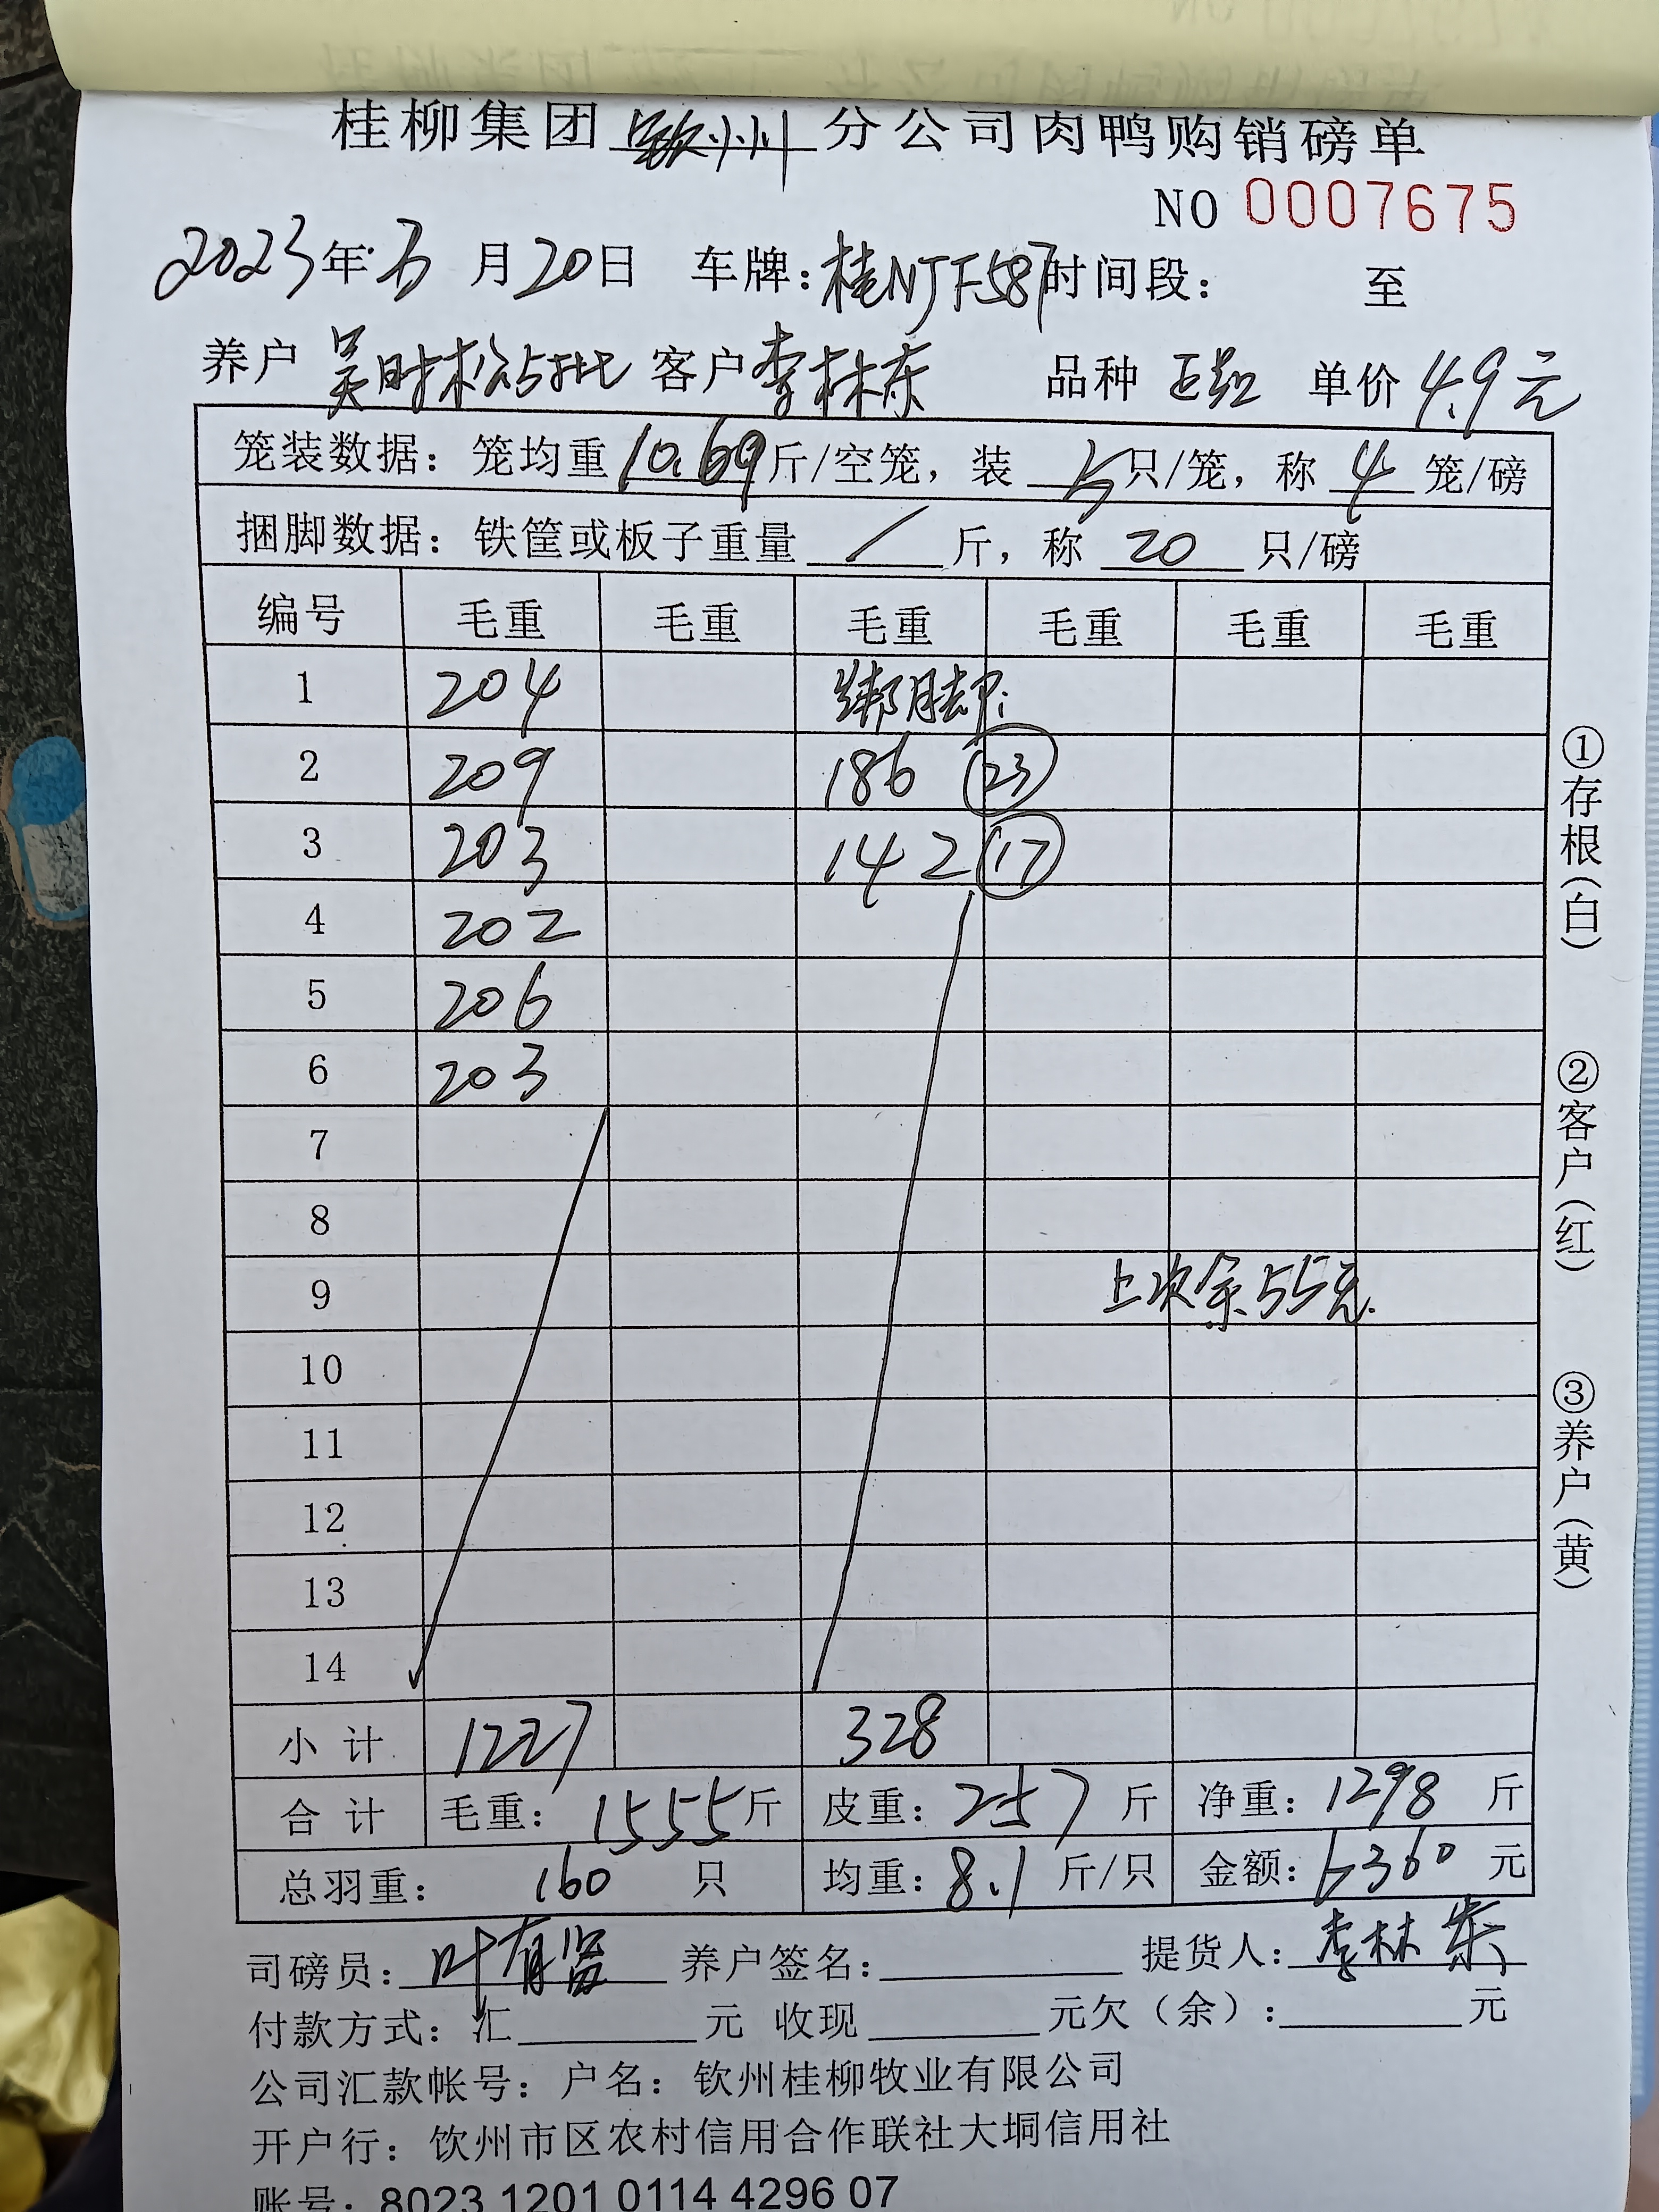 桂柳集团 钦州 分公司肉鸭购销磅单
NO 0007675
2023年 6 月 20日 车牌:桂NJF587时间段: 至
养户 吴时松5批 客户 李林东 品种 正超 单价 4.9元
笼装数据: 笼均重 10.69 斤/空笼, 装 5 只/笼, 称 4 笼/磅
捆脚数据: 铁筐或板子重量 / 斤, 称 20 只/磅
编号 毛重 毛重 毛重 毛重 毛重 毛重
1 204 绑脚:
2 209 186 23
3 203 142 17
4 202
5 206
6 203
7
8
9 上次余55元.
10
11
12
13
14
小 计 1227 328
合 计 毛重: 1555斤 皮重: 257 斤 净重: 1298 斤
总羽重: 160 只 均重: 8.1 斤/只 金额: 6360 元
司磅员: 叶有 养户签名: 提货人: 李林东
付款方式: 汇 元 收现 元欠(余): 元
公司汇款帐号: 户名: 钦州桂柳牧业有限公司
开户行: 钦州市区农村信用合作联社大垌信用社
账号: 8023 1201 0114 4296 07
①存根(白)
②客户(红)
③养户(黄)